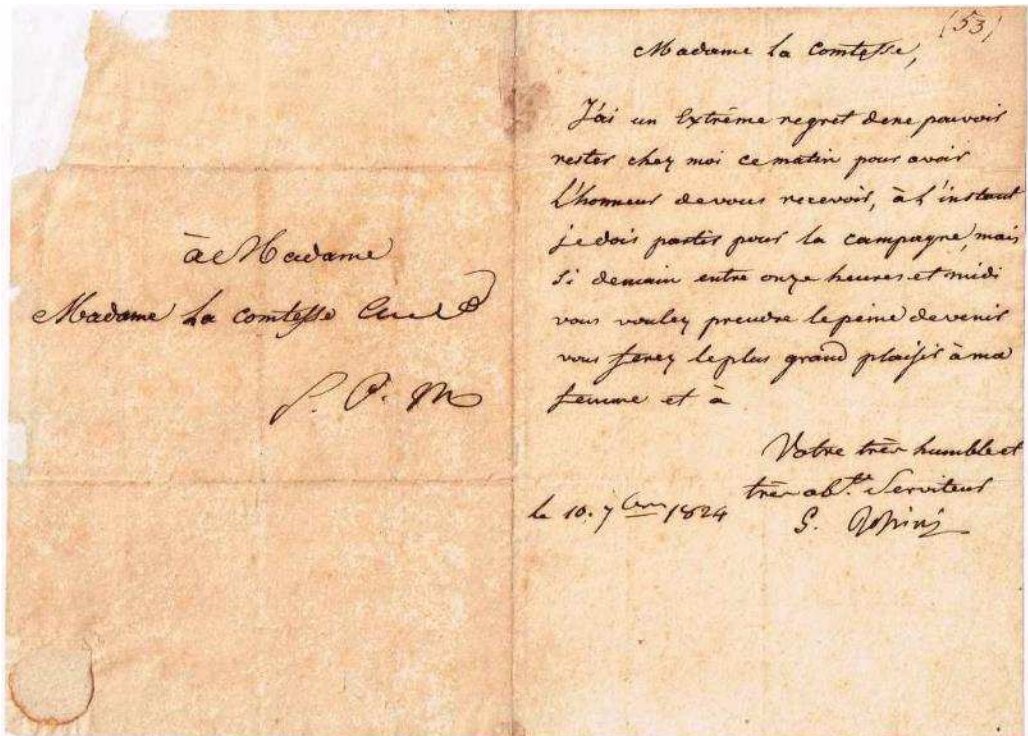 à Madame
Madame la comtesse
S. P. M
(53)
Madame la Comtesse,
J'ai un Extrême regret de ne pouvoir
rester chez moi ce matin pour avoir
L'honneur de vous recevoir, à l'instant
je dois partir pour la campagne, mais
si demain entre onze heures et midi
vous voulez prendre le peine de venir
vous ferez le plus grand plaisir à ma
femme et à
Votre très humble et
très obt. Serviteur
le 10. 7bre 1824
G. Rossini